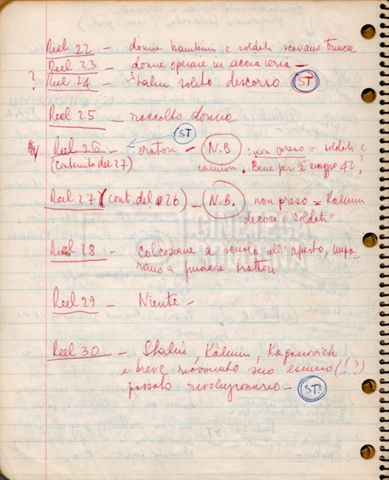 Reel 22 - donne bambini e soldati scavano trincee
Reel 23 - donne operaie in acciaieria -
? Reel 24 - Stalin solito discorso ST
Reel 25 - raccolto donna
ST
Reel 26 - oratori - N.B. : non preso = soldati e
(contenuto del 27) camion. Bene per 1° maggio 42!
Reel 27 (cont. del 26) - N.B. non preso = Kalinin
decora i soldati
Reel 28 - colcosiane a scuola all'aperto, impa-
rano a guidare trattori
Reel 29 - Niente -
Reel 30 - Stalin, Kalinin, Kaganovich
e breve riassunto suo (!?)
passato rivoluzionario - ST